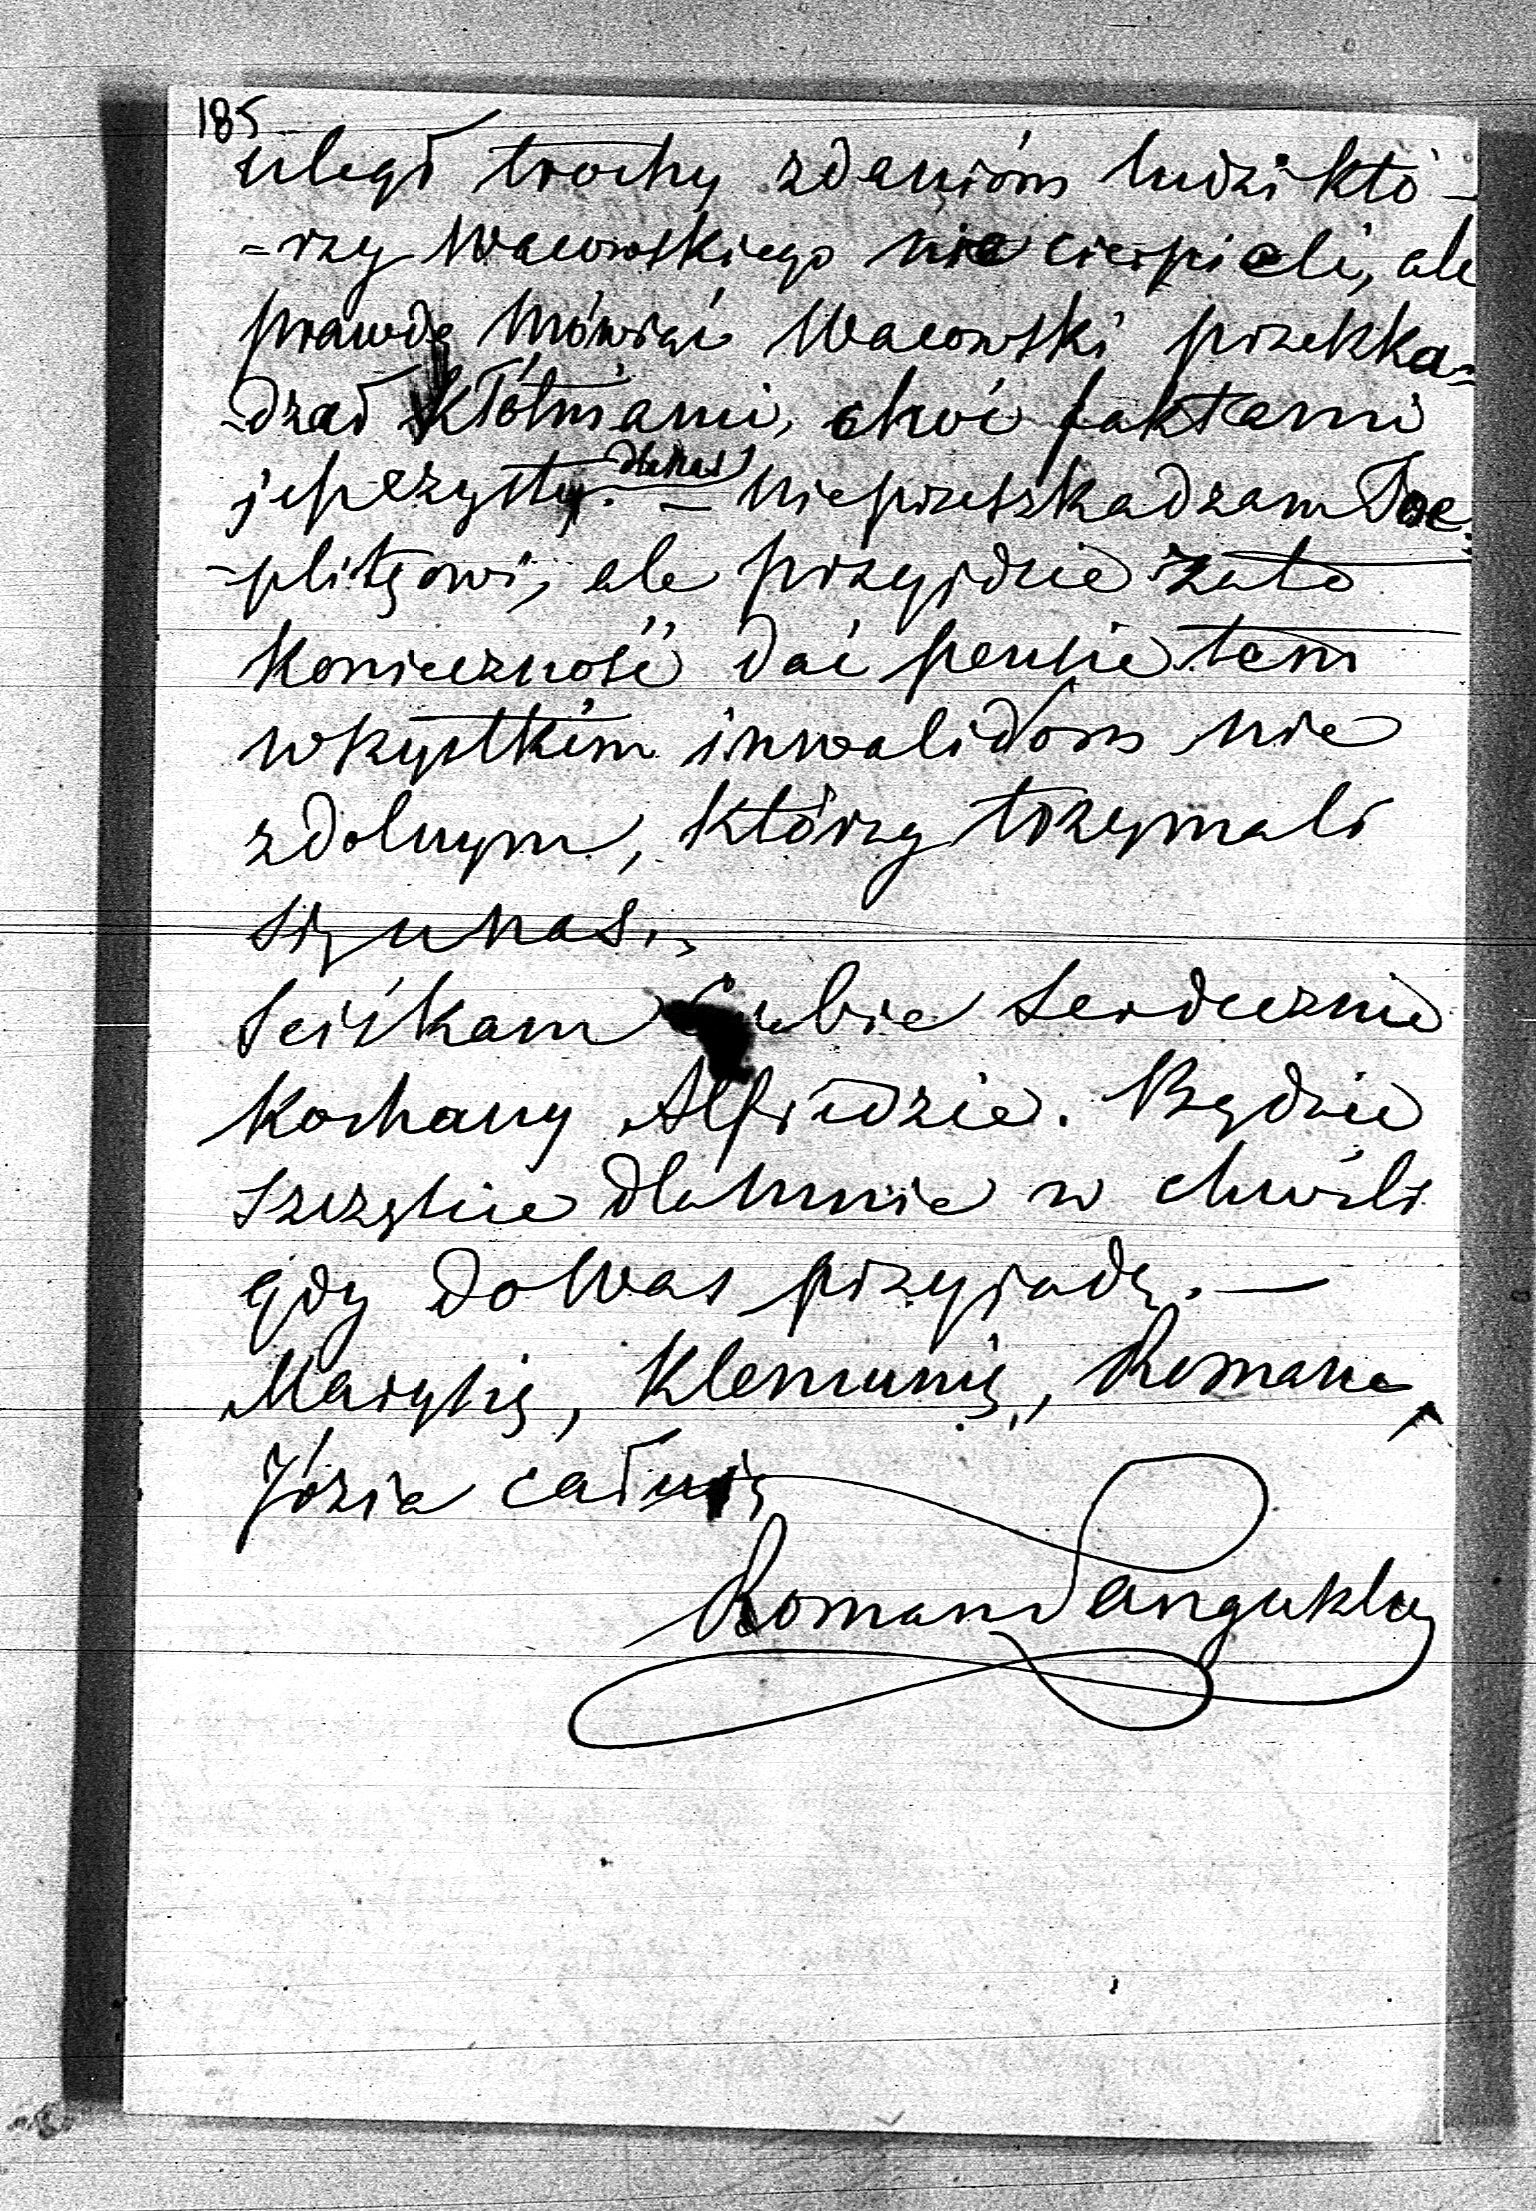 185
uległ trochy zdaniom ludzi któ-
=rzy Wacowskiego nie cierpieli, ale
prawdę mówiąc Wacowski przeska-
-dzał kłótniami, choć faktami
jest czysty. dla nas
— Nie przeszkadzam Toe-
-plitzowi, ale przyjdzie zato
konieczność dać pensie tem
wszystkim inwalidom nie
zdolnym, którzy trzymali
się u nas.
Sciskam Ciebie serdecznie
kochany Alfredzie. Będzie
szczęście dla mnie w chwili
gdy do Was przyjadę. —
Marysię, Klemunię, Romana
Józia całuję
Roman Sanguszko